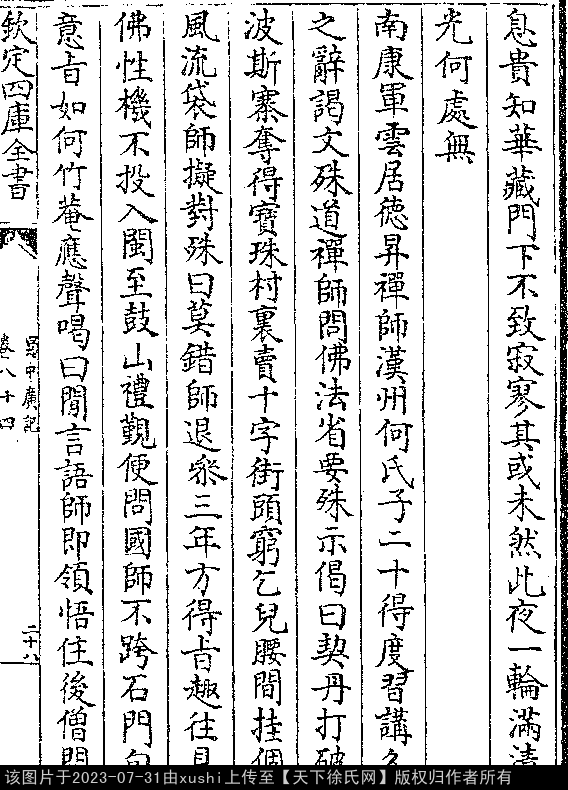 息貴知華藏門下不致寂寥其或未然此夜一輪滿清
光何處無
南康軍雲居德昇禪師漢州何氏子二十得度習講久
之辭謁文殊道禪師問佛法省要殊示偈曰契丹打破
波斯寨奪得寶珠村裏賣十字街頭窮乞兒腰間挂個
風流袋師擬對殊曰莫錯師退參三年方得旨趣往見
佛性機不投入閩至鼓山禮覲便問國師不跨石門句
意旨如何竹菴應聲喝曰閒言語師即領悟住後僧問
欽定四庫全書
蜀中廣記
卷八十四
二十八
该图片于2023-07-31由xushi上传至【天下徐氏网】版权归作者所有